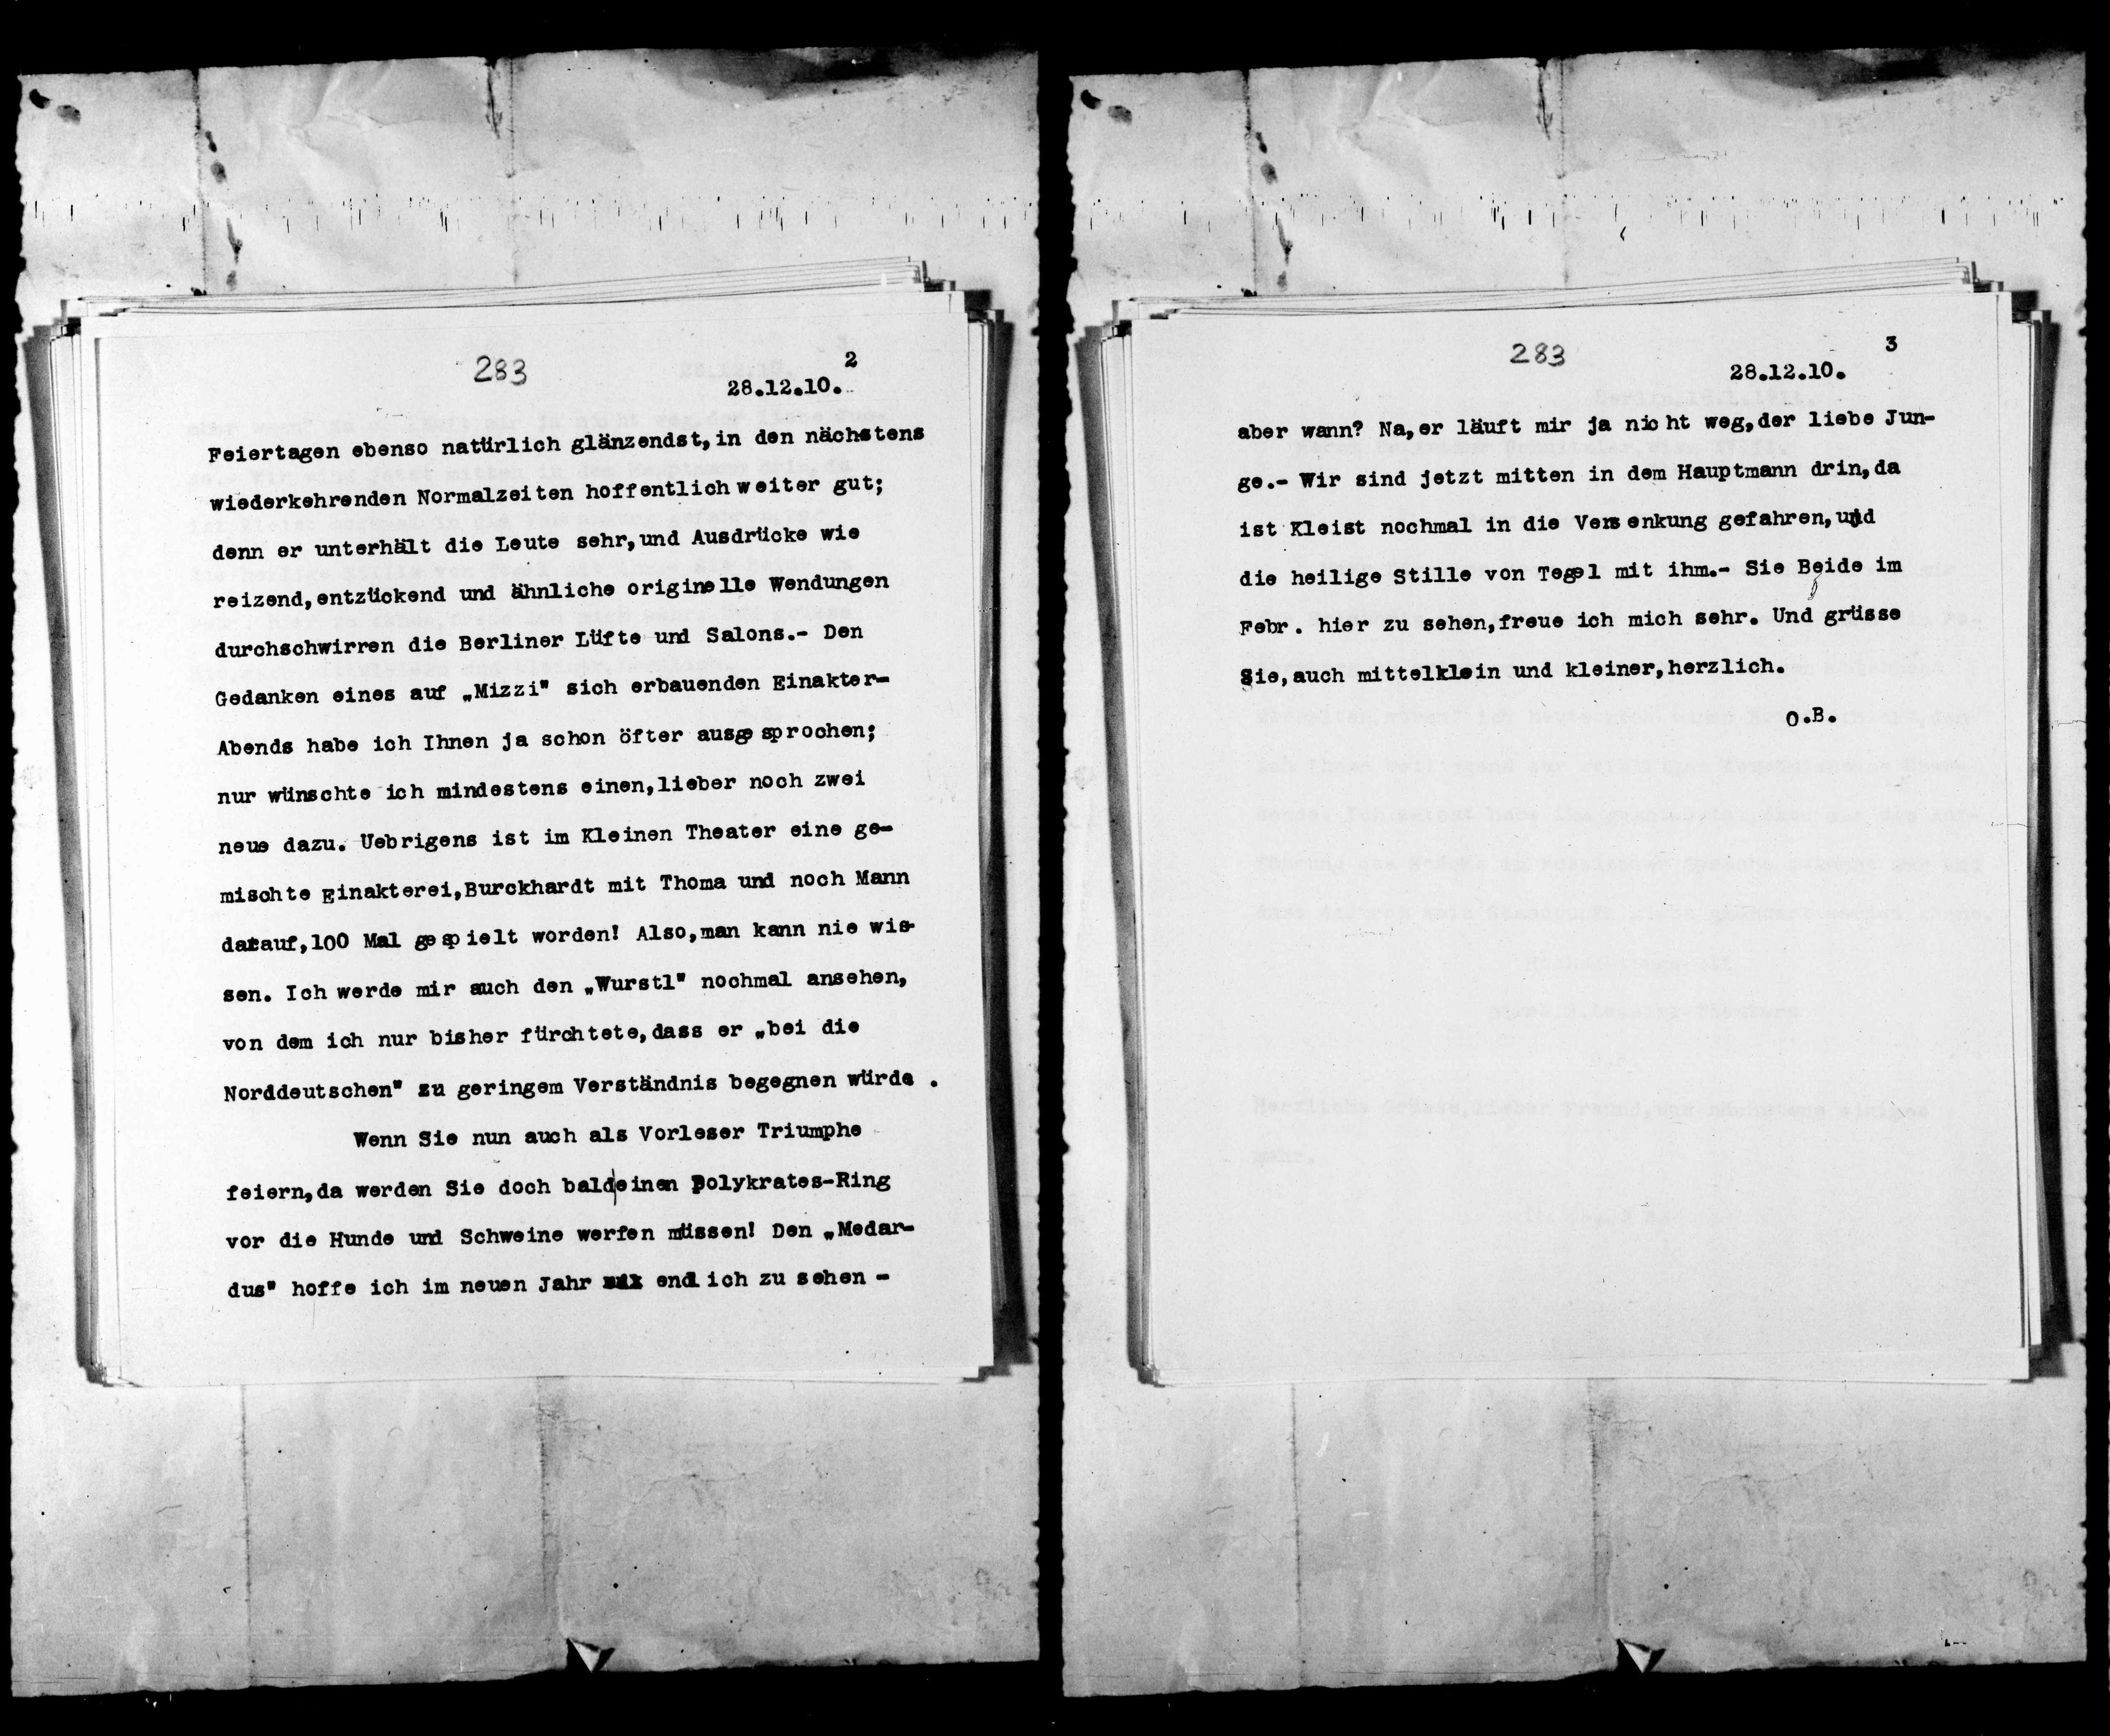 283
2
28.12.10.
Feiertagen ebenso natürlich glänzendst, in den nächstens
wiederkehrenden Normalzeiten hoffentlich weiter gut;
denn er unterhält die Leute sehr, und Ausdrücke wie
reizend, entzückend und ähnliche originelle Wendungen
durchschwirren die Berliner Lüfte und Salons.- Den
Gedanken eines auf „Mizzi" sich erbauenden Einakter-
Abends habe ich Ihnen ja schon öfter ausgesprochen;
nur wünschte ich mindestens einen, lieber noch zwei
neue dazu. Uebrigens ist im Kleinen Theater eine ge-
mischte Einakterei, Burckhardt mit Thoma und noch Mann
darauf, 100 Mal gespielt worden! Also, man kann nie wis-
sen. Ich werde mir auch den „Wurstl" nochmal ansehen,
von dem ich nur bisher fürchtete, dass er „bei die
Norddeutschen" zu geringem Verständnis begegnen würde .
Wenn Sie nun auch als Vorleser Triumphe
feiern, da werden Sie doch bald einen Polykrates-Ring
vor die Hunde und Schweine werfen müssen! Den „Medar-
dus" hoffe ich im neuen Jahr endlich zu sehen -
283
3
28.12.10.
aber wann? Na, er läuft mir ja nicht weg, der liebe Jun-
ge.- Wir sind jetzt mitten in dem Hauptmann drin, da
ist Kleist nochmal in die Versenkung gefahren, und
die heilige Stille von Tegel mit ihm.- Sie Beide im
Febr. hier zu sehen, freue ich mich sehr. Und grüsse
Sie, auch mittelklein und kleiner, herzlich.
O.B.